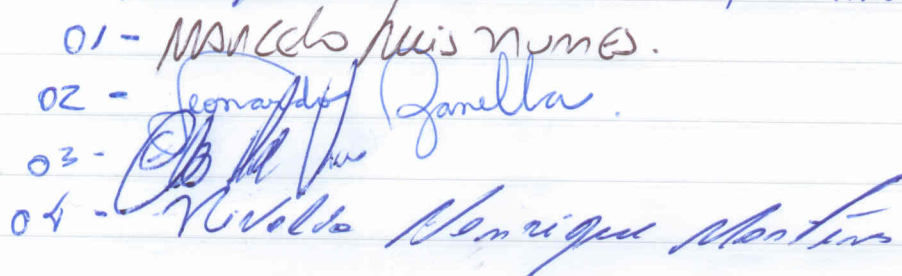 01 - Marcelo Luis Nunes.
02 - Leonardo Zanella.
03 -
04 - Nivaldo Henrique Martins